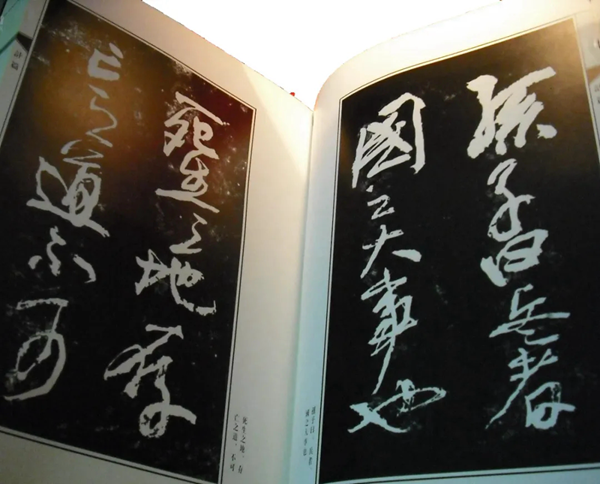 孫子曰兵者
國之大事也
孫子曰，兵者
國之大事也，
死生之地存
亡之道不可
死生之地，存
亡之道，不可